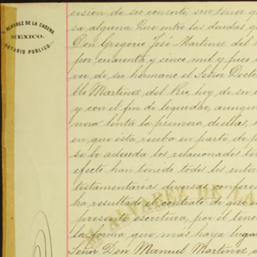 M. ALVAREZ DE LA CADENA
MEXICO.
NOTARIO PUBLICO.
cesion de su consorte, sin tener que
sa alguna. Que entre las deudas q
Don Gregorio José Martinez del
por cuarenta y cinco mil y pico
ve de su hermano el Señor Doctor
blo Martinez del Rio, hoy de su
y con el fin de liquidar, aunque
nua tenta la primera de ellas,
en que ésta hubo en parte de p
se le adeuda los relacionados
efecto han tenido todos los inter
testamentarias diversas conferen
ha resultado el contrato de que
presente escritura, por el tenor
la forma que mas haya lugar
Señor Don Manuel Martinez d